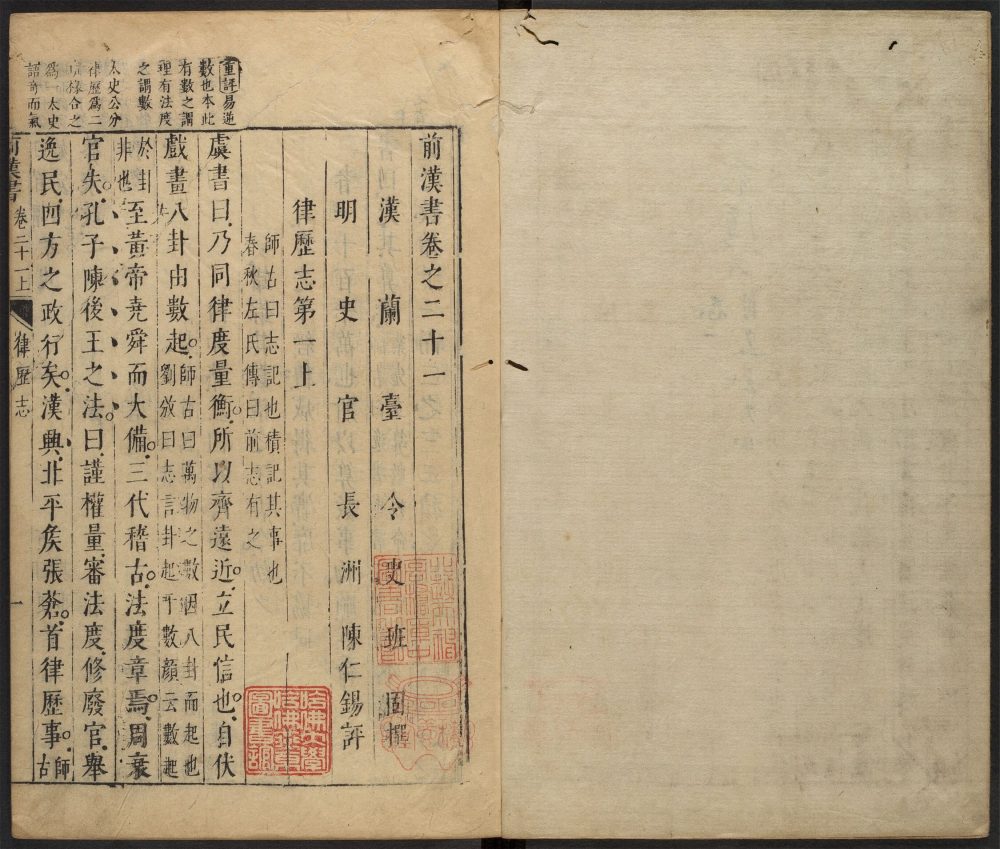 前漢書卷之二十一
漢 蘭臺令史班固撰
明 史官長洲陳仁錫評
律歷志第一上
師古曰志記也積記其事也
春秋左氏傳曰前志有之
虞書曰乃同律度量衡所以齊遠近立民信也自伏
戲畫八卦由數起師古曰萬物之數因八卦而起也
劉攽曰志言卦起于數顏云數起
於卦
非也至黃帝堯舜而大備三代稽古法度章焉周衰
官失孔子陳後王之法曰謹權量審法度修廢官舉
逸民四方之政行矣漢興北平侯張蒼首律歷事師
古
前漢書 卷二十一上 律歷志 一
重評易逆
數也本此
有數之謂
理有法度
之謂數
太史公分
律歷爲二
合之
爲一太史
語奇而氣
哈佛大學
哈佛燕京
圖書館